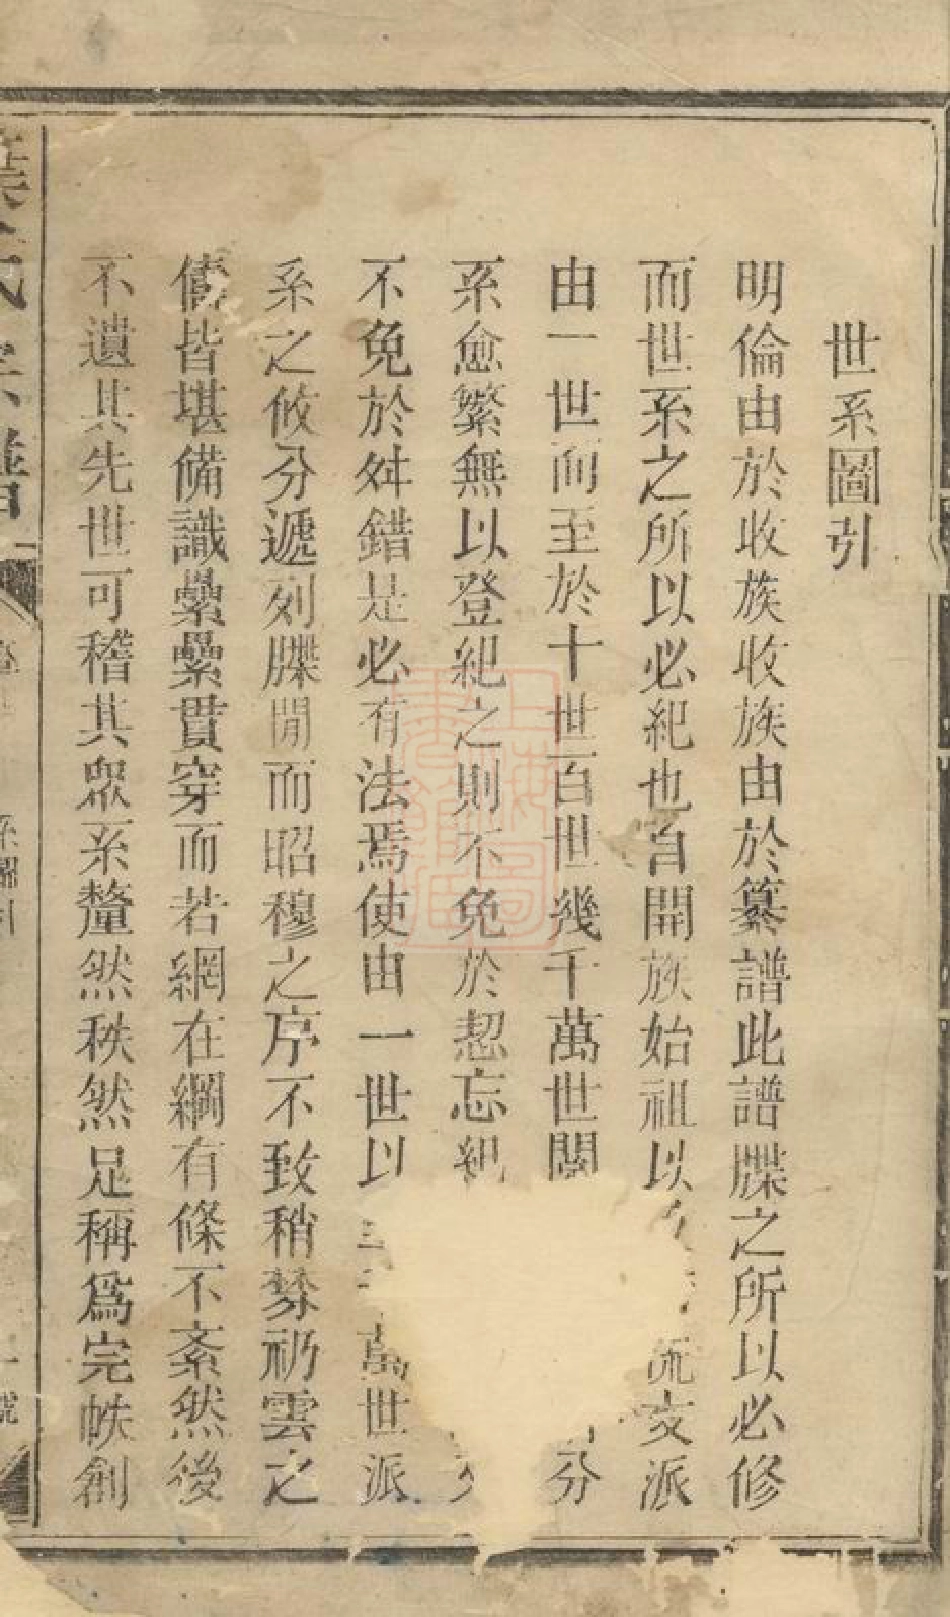 世系圖引
明倫由於收族收族由於纂譜此譜牒之所以必修
而世系之所以必紀也自開族始祖以流支派
由一世而至於十世百世幾千萬世閱分
系愈繁無以登紀之則不免於恝忘紀
不免於舛錯是必有法焉使由一世以萬世派
系之攸分遞列牒閒而昭穆之序不致稍棼礽雲之
僖皆堪備識纍纍貫穿而若網在綱有條不紊然後
不遺其先世可稽其眾系釐然秩然足稱為完帙創
氏宗譜
系圖引